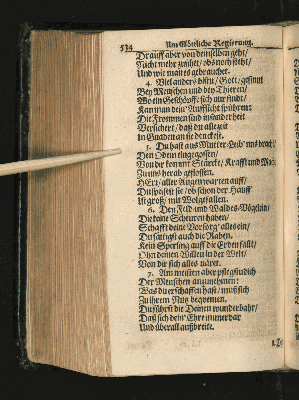 534 Um Göttliche Regierung.
Drauff aber von demselben geht/
Nicht mehr zusihet/ obs noch steht/
Und wie man es gebrauchet.
4. Viel anders bistu/ Gott/ gesinnt
Bey Menschen und bey Thieren/
Wo ein Geschöpff sich nur findt/
Kan man dein' Auffsicht spühren:
Die Frommen sind insonderheit
Versichert/ daß du allezeit
In Gnaden an sie denckest.
5. Du hast aus Mutter-Leib' uns bracht/
Den Odem eingegossen/
Von dir kommt Stärcke/ Krafft und
Zu uns herab geflossen.
HErr/ aller Augen warten auff/
Du speisest sie/ ob schon der Hauff
Ist groß/ mit Wolgefallen.
6. Den Feld-und Waldes-Vögelein/
Die keine Scheuren haben/
Schafft deine Vorsorg' alles ein/
Du sättigst auch die Raben.
Kein Sperling auff die Erden fällt/
Ohn deinen Willen in der Welt/
Von dir sich alles näret.
7. Am meisten aber pflegstu dich
Der Menschen anzunehmen:
Was du erschaffen hast/ muß sich
Zu ihrem Nutz bequemen.
Du führst die Deinen wunderbahr/
Daß sich dein' Ehre immerdar
Und überall außbreite.